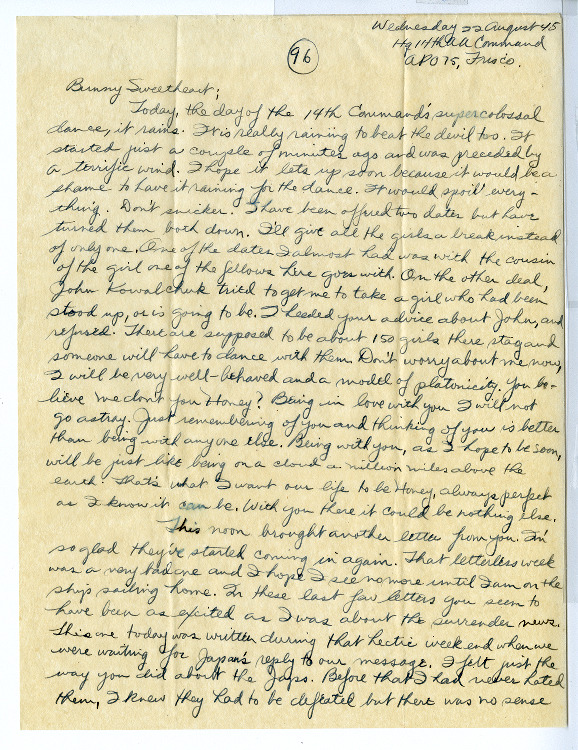 Wednesday 22 August 45
Hq 14th AA Command
APO 75, Frisco.
96
Bunny Sweetheart;
Today, the day of the 14th Command's supercolossal
dance, it rains. It is really raining to beat the devil too. It
started just a couple of minutes ago and was preceded by
a terrific wind. I hope it lets up soon because it would be a
shame to have it raining for the dance. It would spoil every-
thing. Don't snicker. I have been offered two dates but have
turned them both down. I'll give all the girls a break instead
of only one. One of the dates I almost had was with the cousin
of the girl one of the fellows here goes with. On the other deal,
John Kowalchuk tried to get me to take a girl who had been
stood up, or is going to be. I heeded your advice about John, and
refused. There are supposed to be about 150 girls there stag and
someone will have to dance with them. Don't worry about me now,
I will be very well-behaved and a model of platonicity. You be-
lieve me don't you Honey? Being in love with you I will not
go astray. Just remembering of you and thinking of you is better
than being with anyone else. Being with you, as I hope to be soon,
will be just like being on a cloud a million miles above the
earth. That's what I want our life to be Honey, always perfect
as I know it can be. With you there it could be nothing else.
This noon brought another letter from you. I'm
so glad they've started coming in again. That letterless week
was a very bad one and I hope I see no more until I am on the
ship sailing home. In these last few letters you seem to
have been as excited as I was about the surrender news.
This one today was written during that hectic weekend when we
were waiting for Japan's reply to our message. I felt just the
way you did about the Japs. Before that I had never hated
them, I knew they had to be defeated but there was no sense